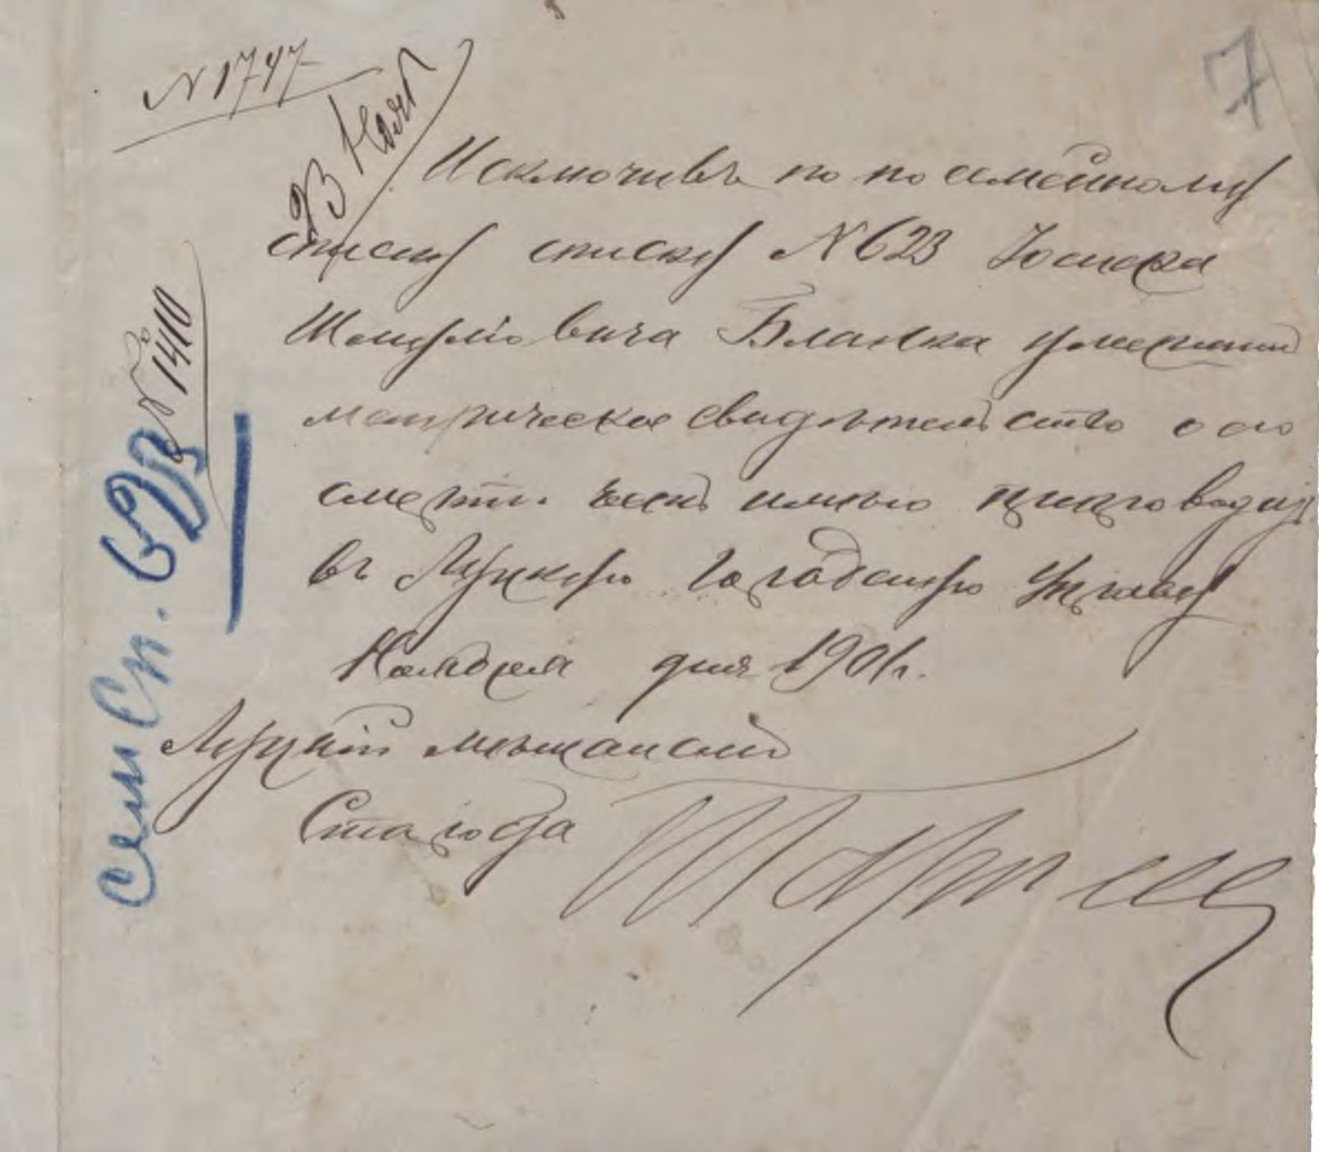 N 1747
7
23 Нояб
Исключивъ по посемейному
списку списку N 623 Іосифа
Шмулёвича Бланка умершаго
метрическое свидѣтельство о его
смерти. честь имѣю препроводить
въ Луцкую Городскую Управу
Ноября дня 1901 г.
Луцкій мѣщанскій
Староста
N 1410
Сем Сп. 623